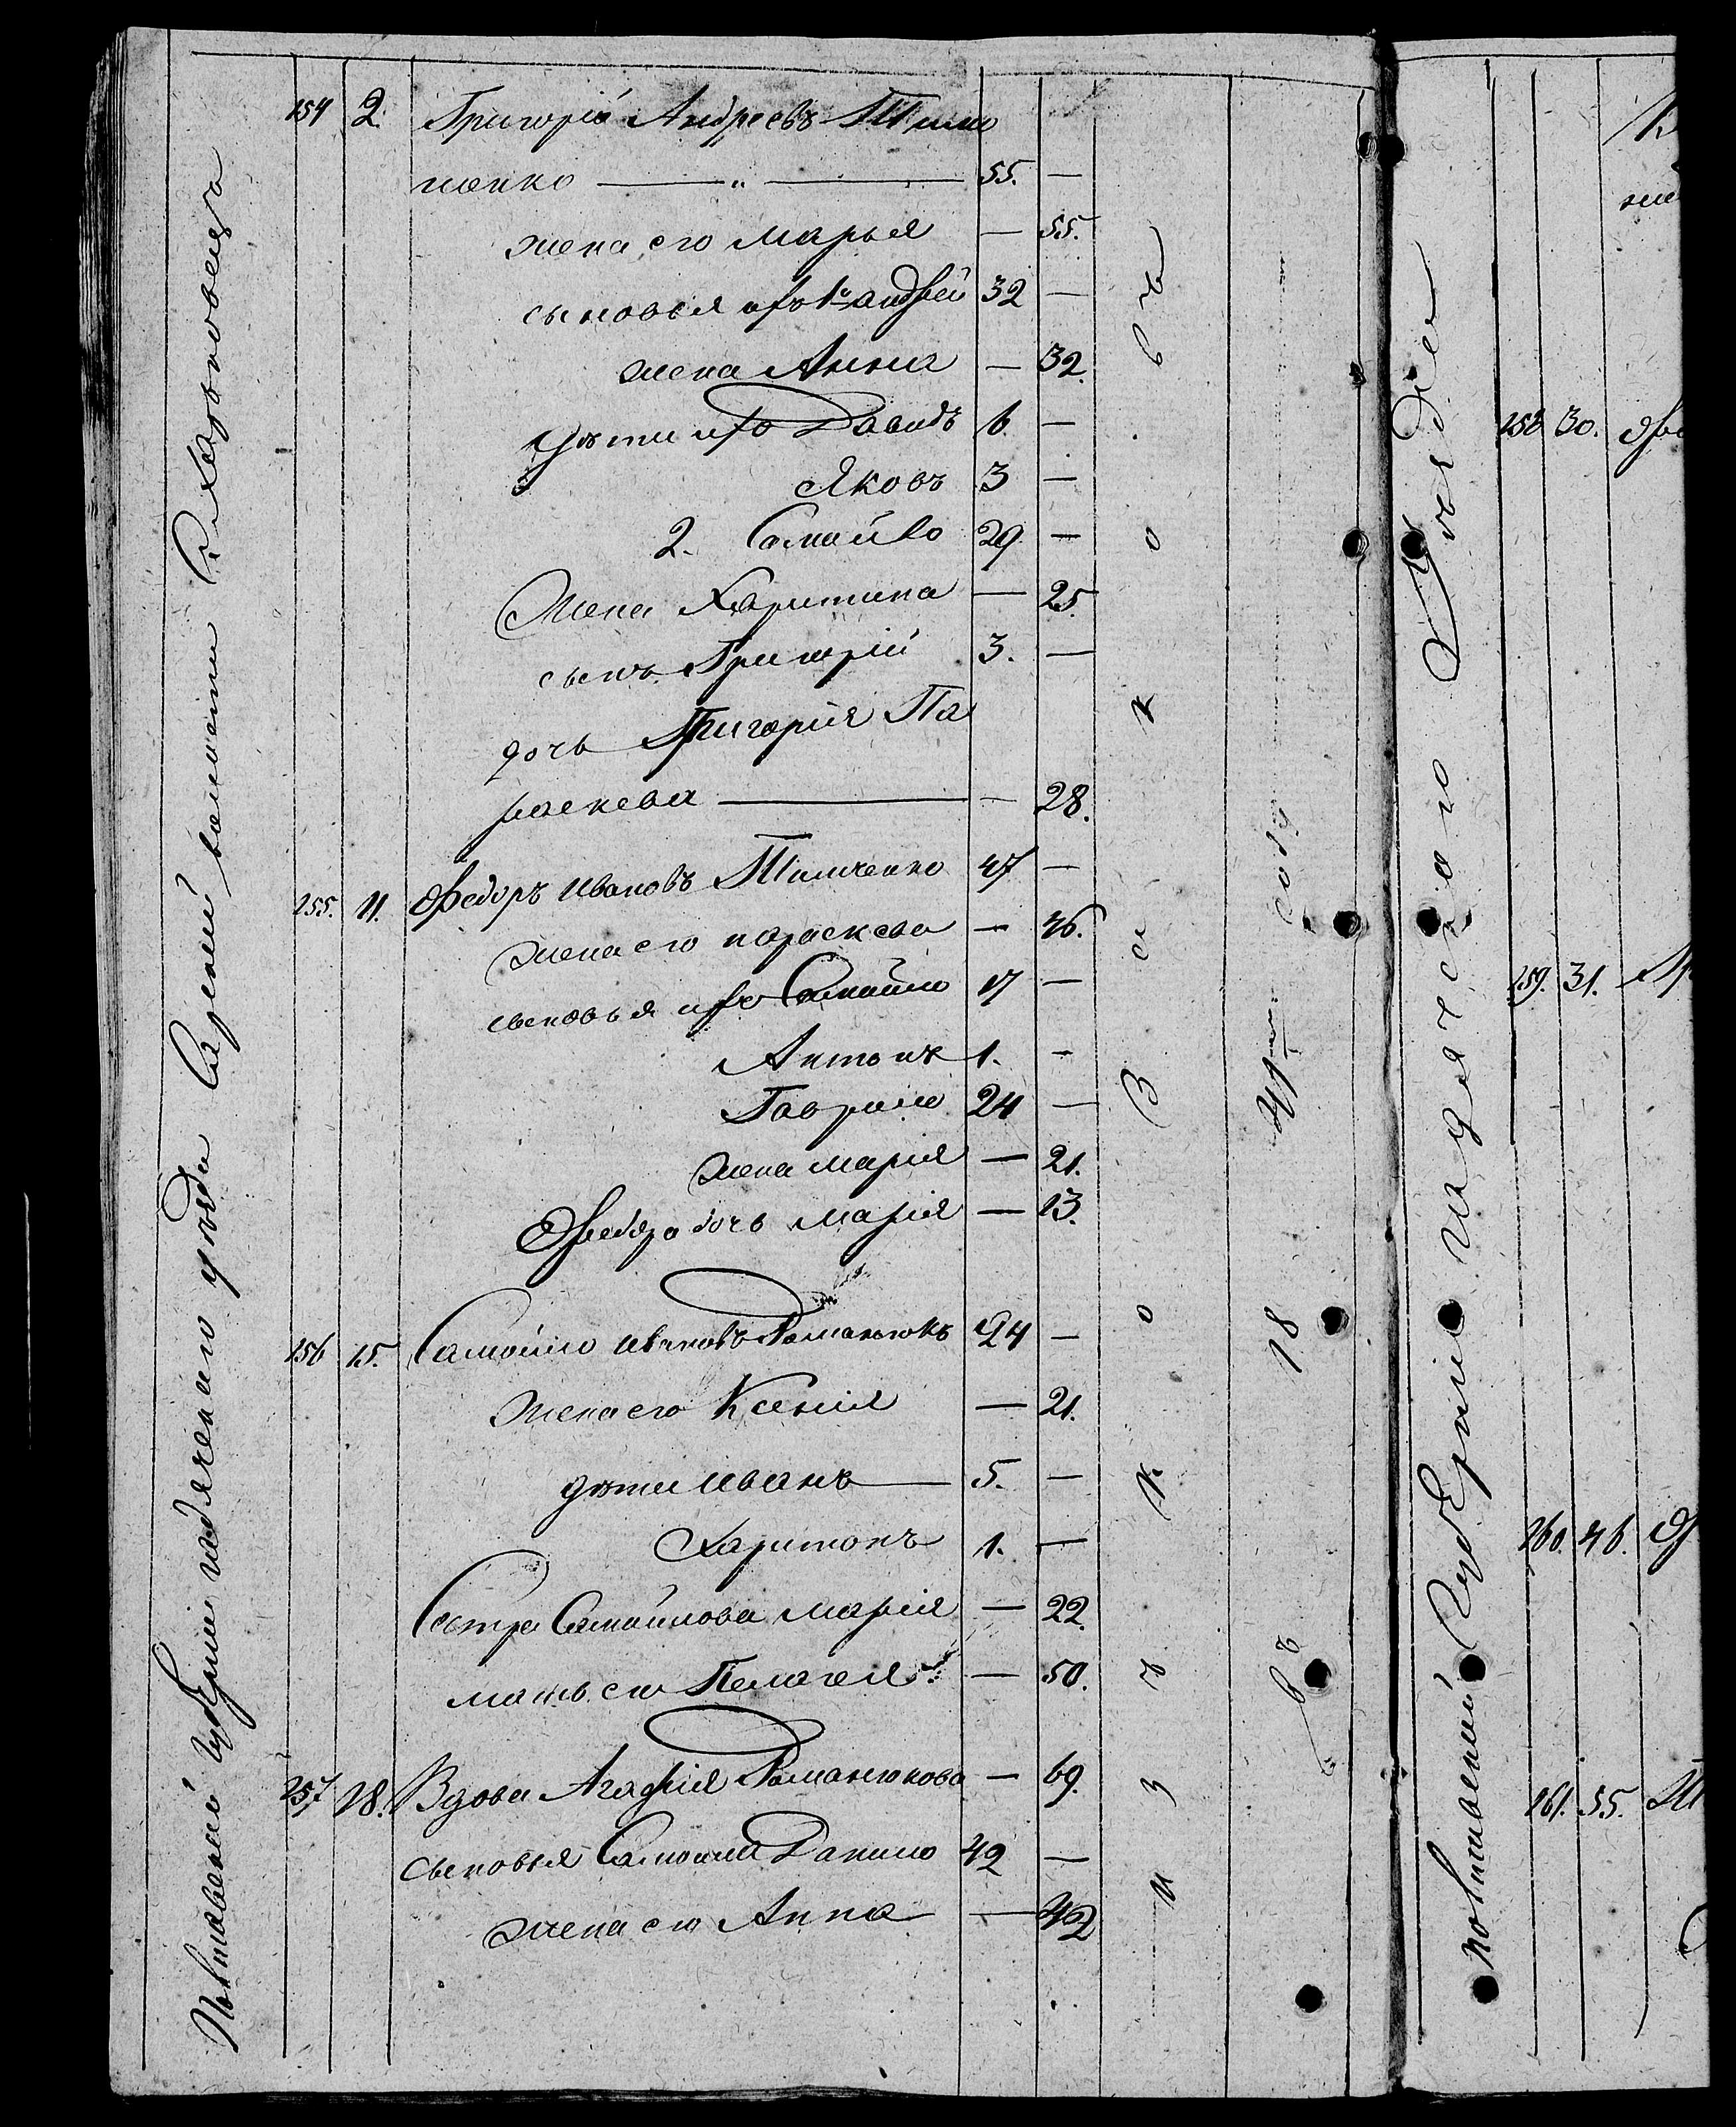 Полтавской Губерніи гадячскаго уѣзда
154 2. Григорій Андреевъ Тим
ченко — „ — 55. —
жена его Марья — 55.
сыновья ихъ 1й андрей 32 —
жена Анна — 32.
дѣти ихъ Давидъ 6. —
Яковъ 3 —
2. Самойло 29. —
Жена Харитина — 25
сынъ Григорій 3. —
дочь Григорія Па
раскева — — 28.
155. 11. Федоръ Ивановъ Тимченко 47 —
жена его параскева — 46.
сыновья ихъ Самойло 17 —
Антонъ 1. —
Гаврило 24 —
жена марія — 21.
Федора дочь марія — 13.
156 15. Самойло Ивановъ Романюкъ 24 —
жена его Ксенія — 21.
дѣти Иванъ — 5. —
Харитонъ 1. —
Сестра Самойлова марія — 22.
мать его Пелагея — 50.
157 18. Вдова Агафія Романюкова — 69.
сыновья Самойло Данило 42 —
жена его Анна — 42
въ 18 41м году
полтавской Губерніи гадячскаго Уѣзда
158 30.
159. 31.
160. 46.
161. 55.